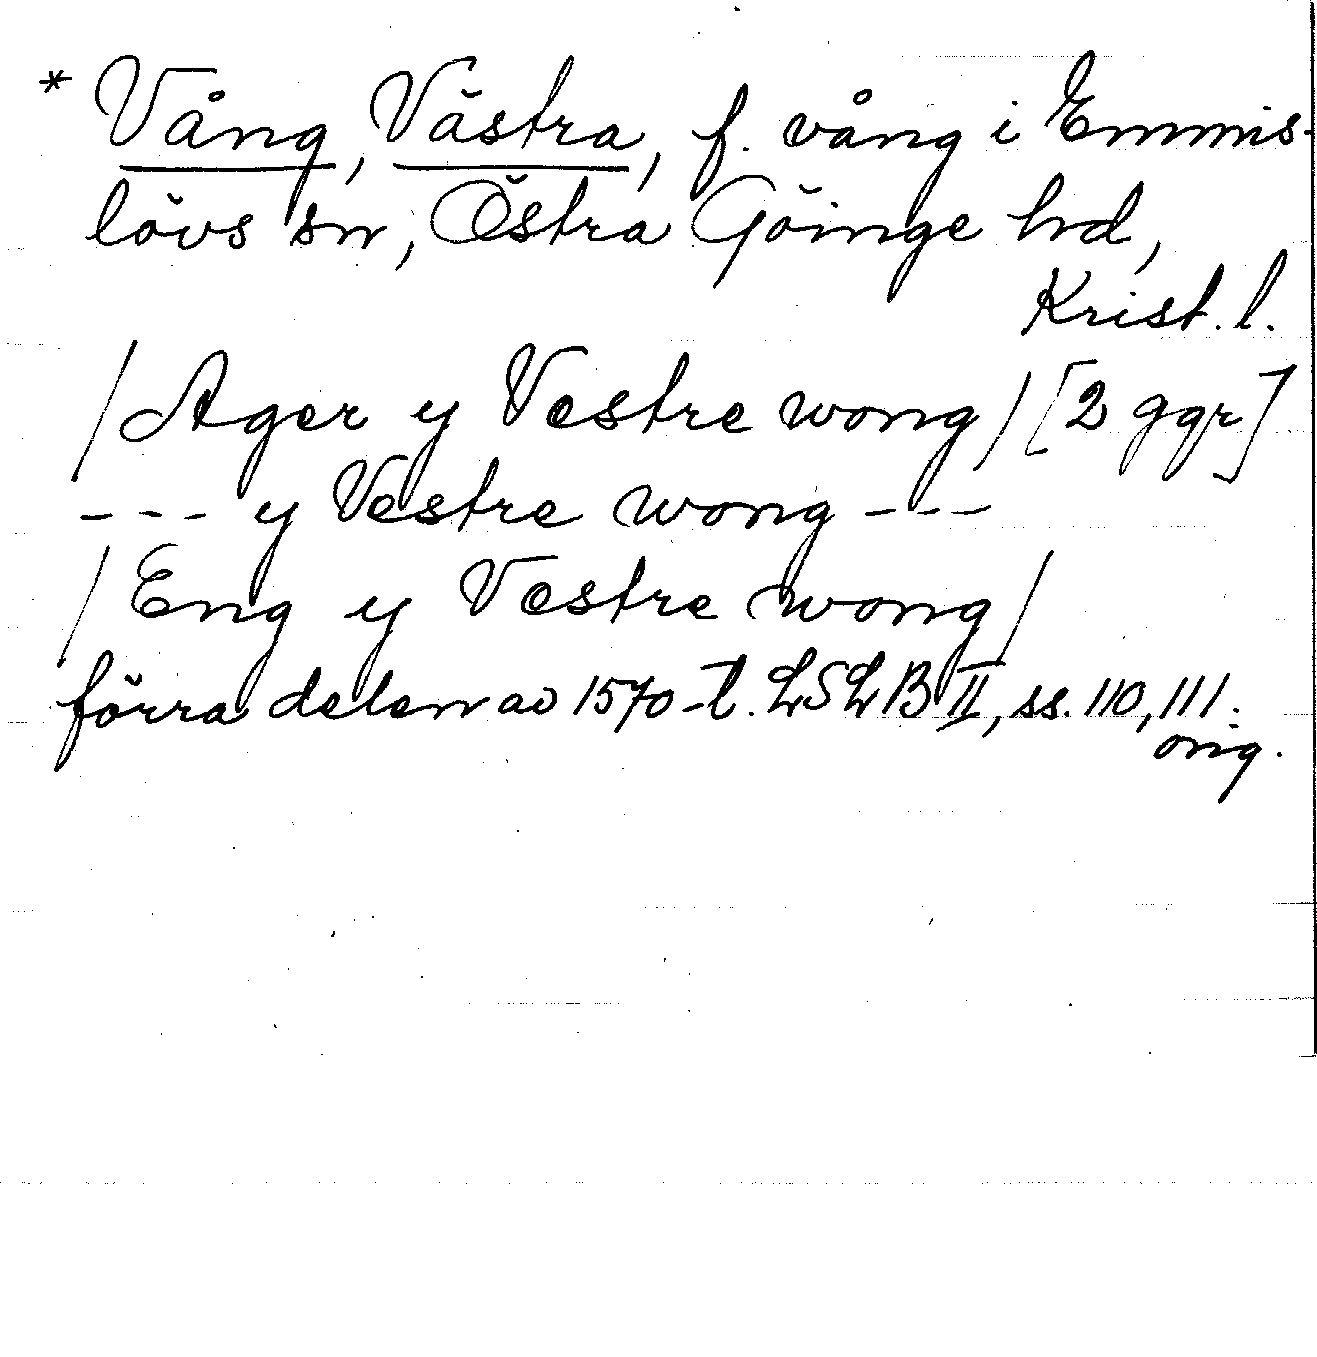 * Vång, Västra, f. vång i Emmis-
lövs sn, Östra Göinge hd,
Krist. l.
/Ager y Vestre wong/ [2 ggr]
--- y Vestre wong ---
/Eng y Vestre wong/
förra delen av 1570-t. LSLB II, ss. 110, 111.
orig.